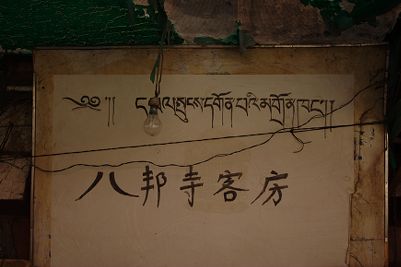 ༄༅། །དཔལ་སྤུངས་དགོན་པའི་མགྲོན་ཁང་། །
八邦寺客房